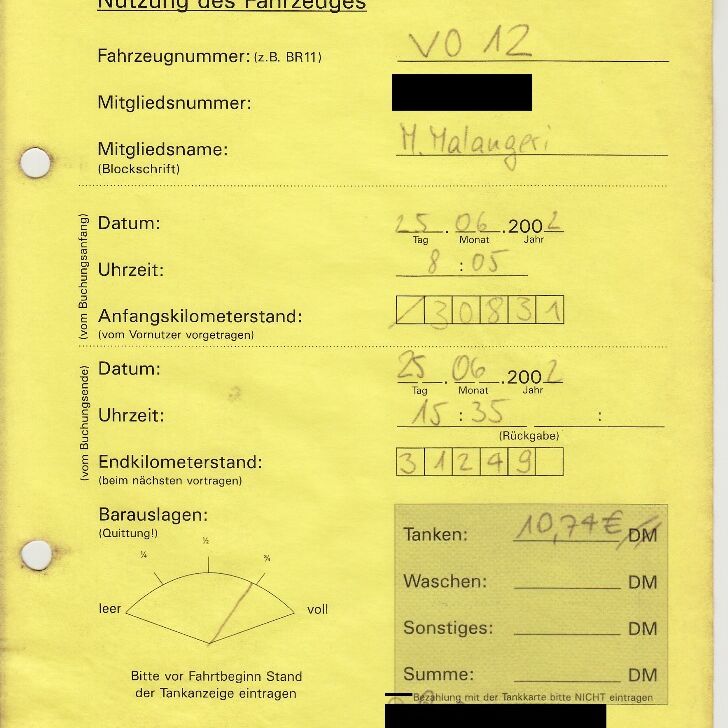 Nutzung des Fahrzeuges
Fahrzeugnummer: (z.B. BR11) VO 12
Mitgliedsnummer:
Mitgliedsname: M. Malangeri
(Blockschrift)
(vom Buchungsanfang)
Datum: 25.06.2002
Tag Monat Jahr
Uhrzeit: 8:05
Anfangskilometerstand: /30831
(vom Vornutzer vorgetragen)
(vom Buchungsende)
Datum: 25.06.2002
Tag Monat Jahr
Uhrzeit: 15:35 :
(Rückgabe)
Endkilometerstand: 31249
(beim nächsten vortragen)
Barauslagen:
(Quittung!)
¼ ½ ¾
leer voll
Bitte vor Fahrtbeginn Stand
der Tankanzeige eintragen
Tanken: 10,74€ DM
Waschen: DM
Sonstiges: DM
Summe: DM
Bezahlung mit der Tankkarte bitte NICHT eintragen